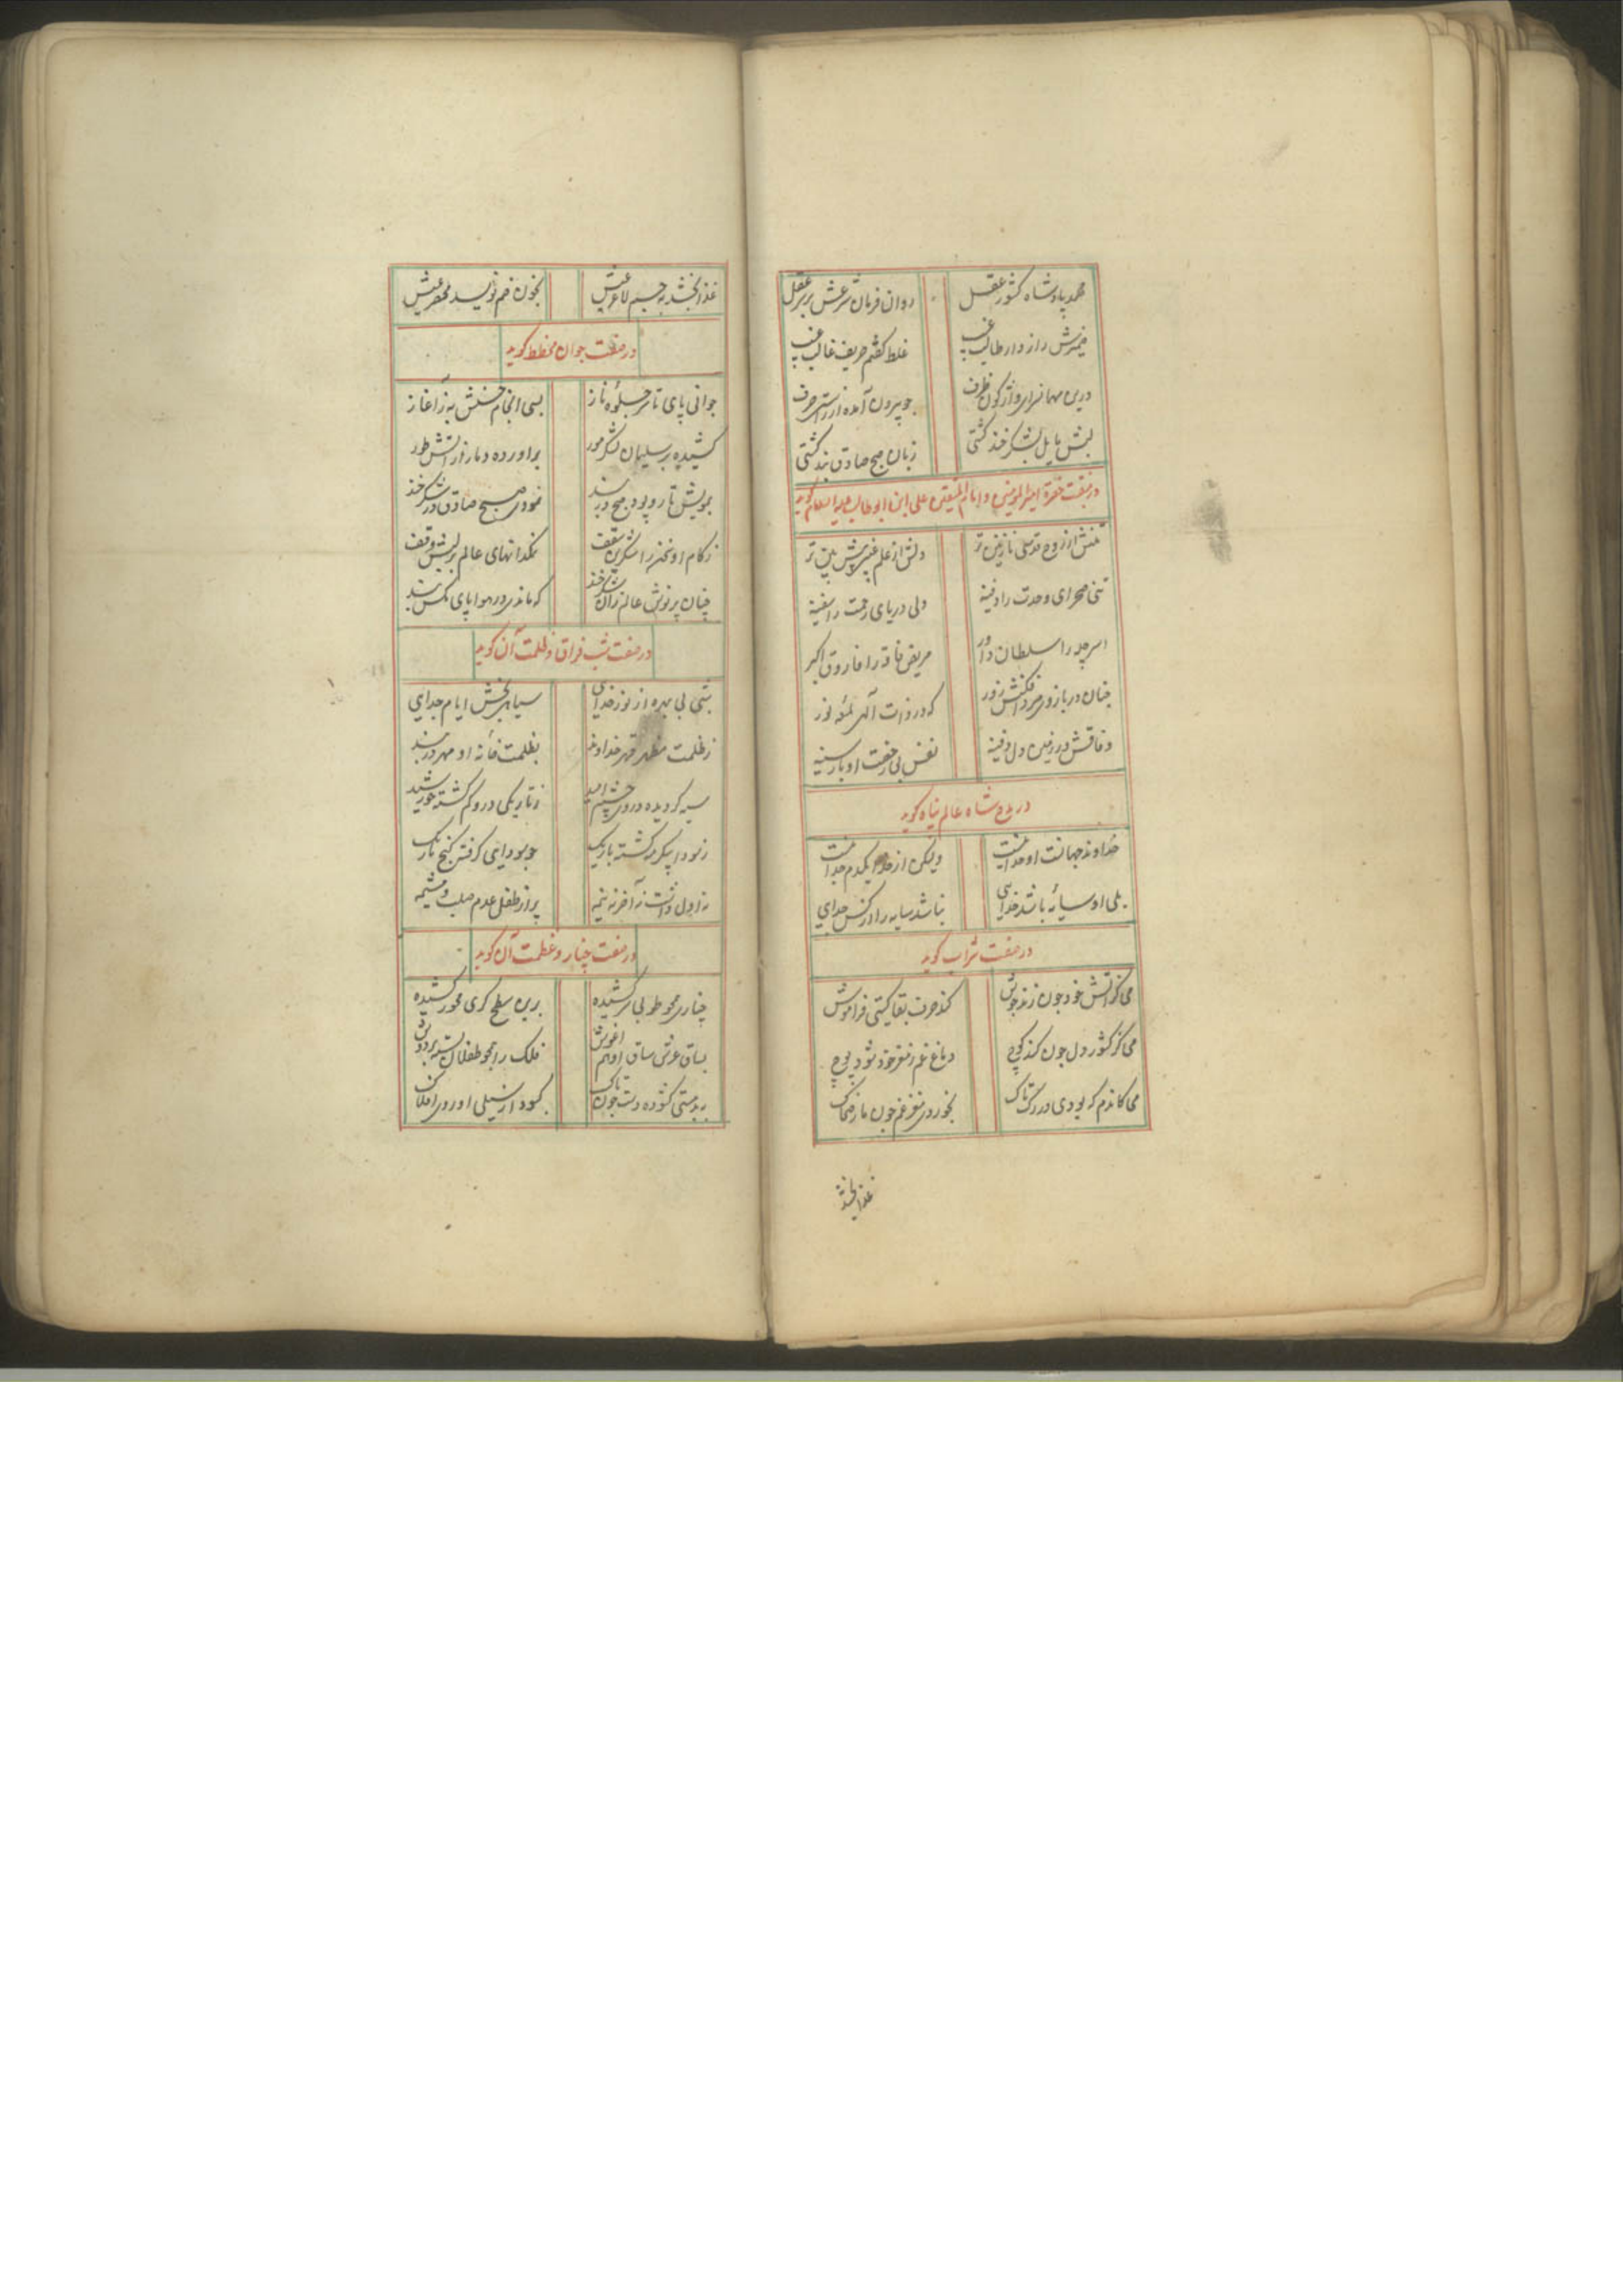 محمد پادشاه کشور عقل روان فرمان شرعش بر سر عقل
ضمیرش راز دار طالب غیب غلط گفتم حریف غالب غیب
درین مهمانسرای واژگون ظرف چو بیرون آمده از حرف
لبش با یک شکر خند زبان صبح صادق بند گشتی
در منقبت حضرة امیر المومنین و امام المتقین علی ابن ابوطالب علیه السلام گوید
تنش از روح قدسی نازنین تر دلش از علم غیبی پیش بین تر
تنی صحرای وحدت را دفینه دلی دریای رحمت را سفینه
سلطان داور مریض فاقه را فاروق اکبر
چنان در بازوی مرد افکنش زور که در ذات الهی نور
وفاقش در زمین دل دفینه نفس بی رخصت او بار سینه
در مدح شاه عالم پناه گوید
خداوند جهانست او خدا نیست ولیکن از خدا یکدم جدا نیست
بلی او سایه باشد خدایی نباشد سایه را از کس جدایی
در صفت شراب گوید
می کز آتش خود چون زند جوش کند حرف بقا گیتی فراموش
می کز کشور دل چون کند کوچ دماغ غم ز مغز خود شود پوچ
می کاندم که بودی در رگ تاک بخوردی مغز غم چون مار ضحاک
غذا بخشد
غذا بخشد به جسم لاغر عیش بخون غم نویسد محضر عیش
در صفت جوان مخطط گوید
جوانی پای تا سر جلوه ناز بسی انجام حسنش به ز آغاز
کشیده بر سلیمان لشکر مور براورده دمار از آتش طور
بمویش تار و پود صبح در بند نمودی صبح صادق در شکر خند
ز کام او سخن را شکرین سقف نمکدانهای عالم بر لبش وقف
چنان پر نوش عالم زان شکر خند که ماندی در هوا پای مگس بند
در صفت شب فراق و ظلمت آن گوید
شبی بی بهره از نور خدایی سیاهی بخش ایام جدایی
ز ظلمت مظهر قهر خداوند بظلمت خانه او مهر در بند
سیه گردیده در وی چشم امید ز تاریکی درو گم گشته خورشید
ز سودا پیکر مه گشته باریک چو سودایی گرفته کنج تاریک
نه اول داشت نه آخر نه نیمه پر از طفل عدم صلب و مشیمه
در صفت چنار و عظمت آن گوید
چناری همچو طوبی سر کشیده برین سطح کری محور کشیده
بساق عرش ساق او هم اغوش فلک را همچو طفلان بسته بر دوش
بدمستی گشوده دست چون تاک کبود از سیلی او روی افلاک